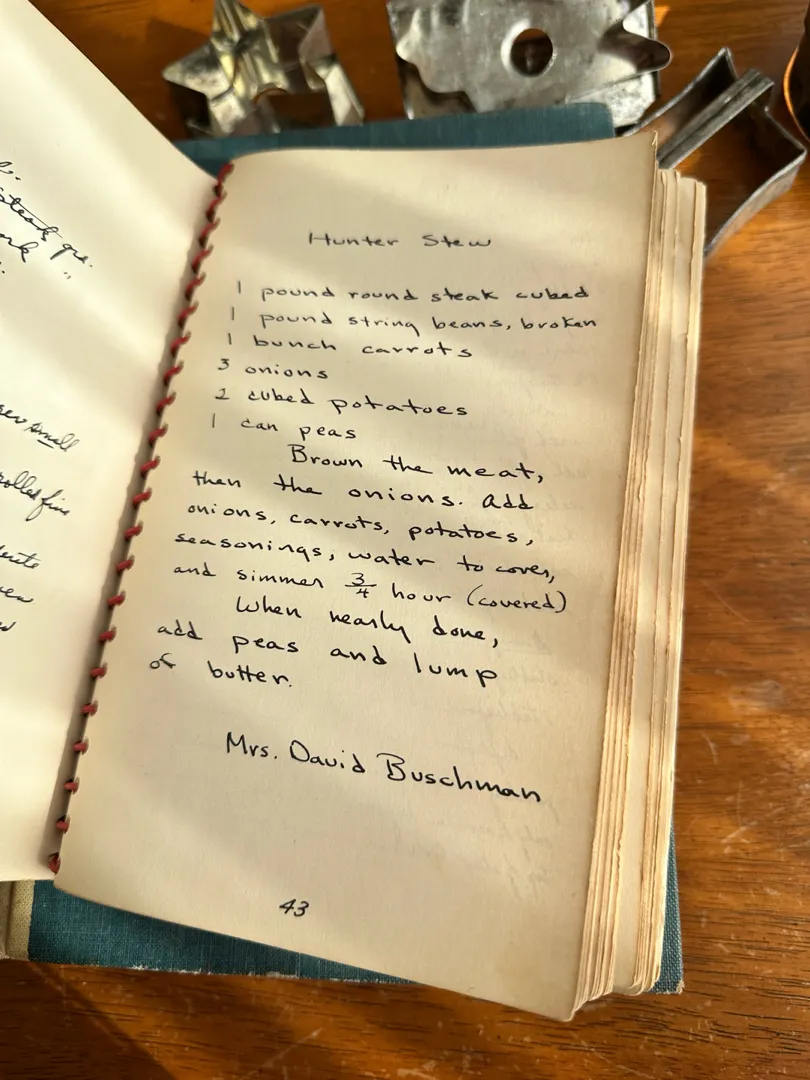 steak gr.
"
small
rolled fine
Hunter Stew
1 pound round steak cubed
1 pound string beans, broken
1 bunch carrots
3 onions
2 cubed potatoes
1 can peas
Brown the meat,
then the onions. Add
onions, carrots, potatoes,
seasonings, water to cover,
and simmer 3/4 hour (covered)
When nearly done,
add peas and lump
of butter.
Mrs. David Buschman
43